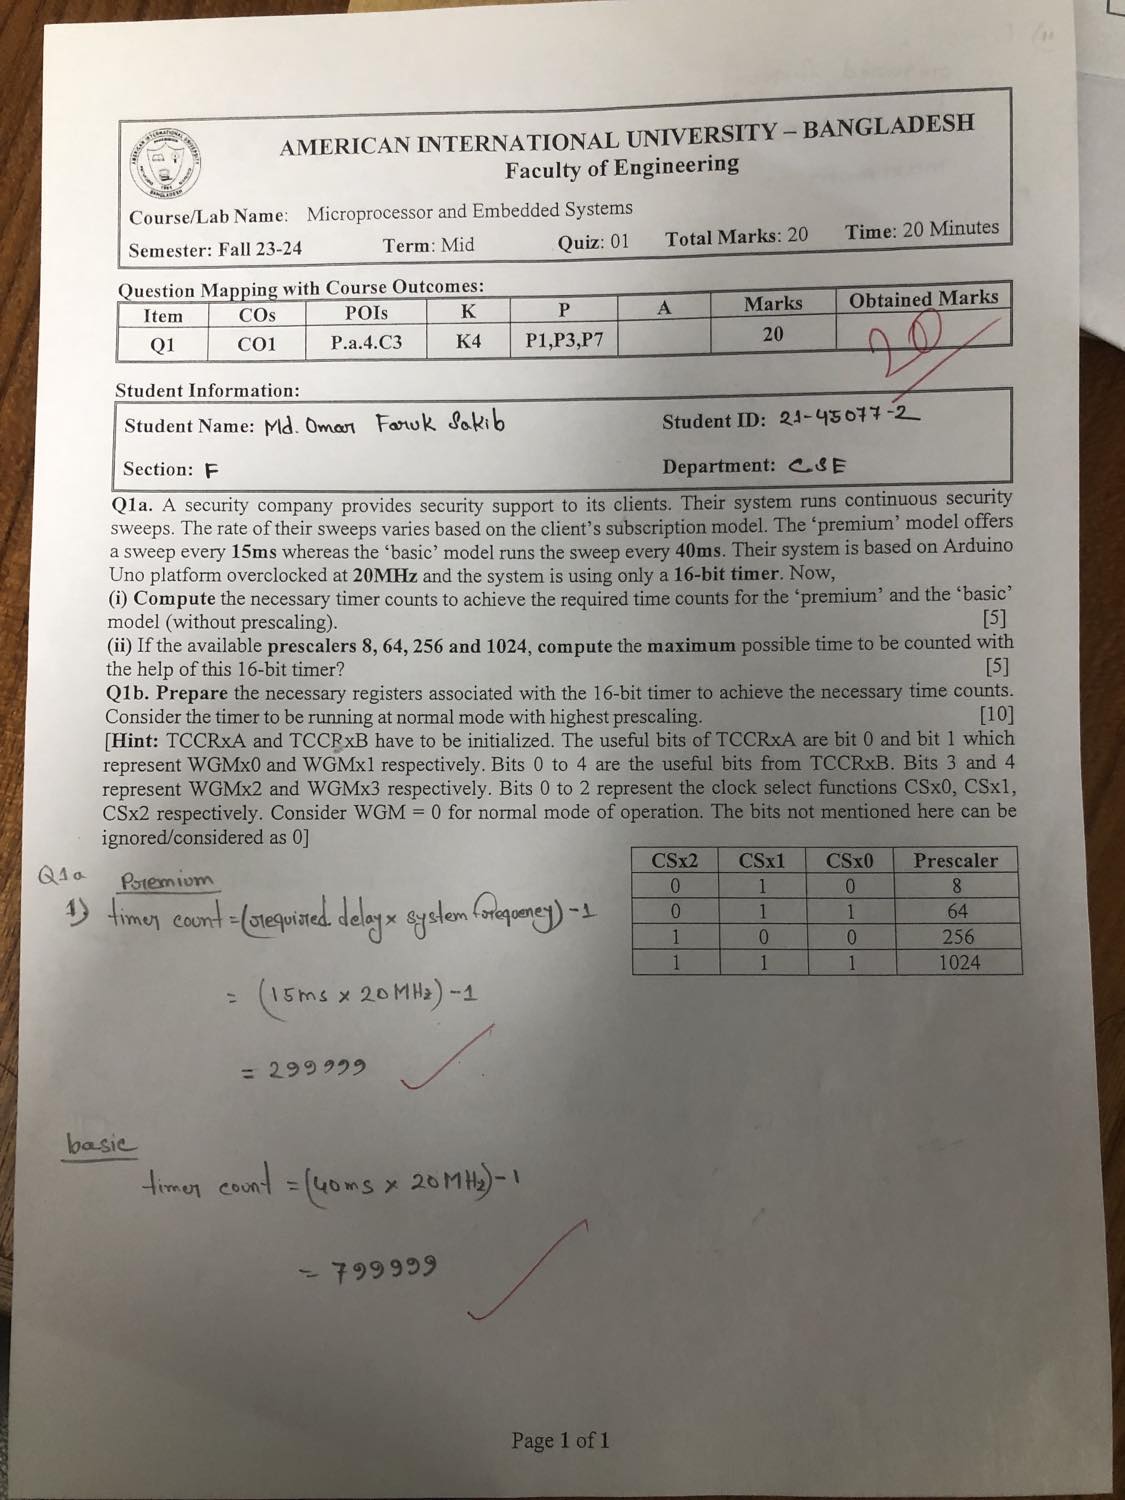 AMERICAN INTERNATIONAL UNIVERSITY – BANGLADESH
Faculty of Engineering
Course/Lab Name: Microprocessor and Embedded Systems
Semester: Fall 23-24 Term: Mid Quiz: 01 Total Marks: 20 Time: 20 Minutes
Question Mapping with Course Outcomes:
Item COs POIs K P A Marks Obtained Marks
Q1 CO1 P.a.4.C3 K4 P1,P3,P7 20 20
Student Information:
Student Name: Md. Omar Faruk Sakib Student ID: 21-45077-2
Section: F Department: CSE
Q1a. A security company provides security support to its clients. Their system runs continuous security
sweeps. The rate of their sweeps varies based on the client's subscription model. The 'premium' model offers
a sweep every 15ms whereas the 'basic' model runs the sweep every 40ms. Their system is based on Arduino
Uno platform overclocked at 20MHz and the system is using only a 16-bit timer. Now,
(i) Compute the necessary timer counts to achieve the required time counts for the 'premium' and the 'basic'
model (without prescaling). [5]
(ii) If the available prescalers 8, 64, 256 and 1024, compute the maximum possible time to be counted with
the help of this 16-bit timer? [5]
Q1b. Prepare the necessary registers associated with the 16-bit timer to achieve the necessary time counts.
Consider the timer to be running at normal mode with highest prescaling. [10]
[Hint: TCCRxA and TCCRxB have to be initialized. The useful bits of TCCRxA are bit 0 and bit 1 which
represent WGMx0 and WGMx1 respectively. Bits 0 to 4 are the useful bits from TCCRxB. Bits 3 and 4
represent WGMx2 and WGMx3 respectively. Bits 0 to 2 represent the clock select functions CSx0, CSx1,
CSx2 respectively. Consider WGM = 0 for normal mode of operation. The bits not mentioned here can be
ignored/considered as 0]
CSx2 CSx1 CSx0 Prescaler
0 1 0 8
0 1 1 64
1 0 0 256
1 1 1 1024
Q1a Premium
1) timer count = (required delay × system frequency) - 1
= (15ms × 20MHz) - 1
= 299999
basic
timer count = (40ms × 20MHz) - 1
= 799999
Page 1 of 1